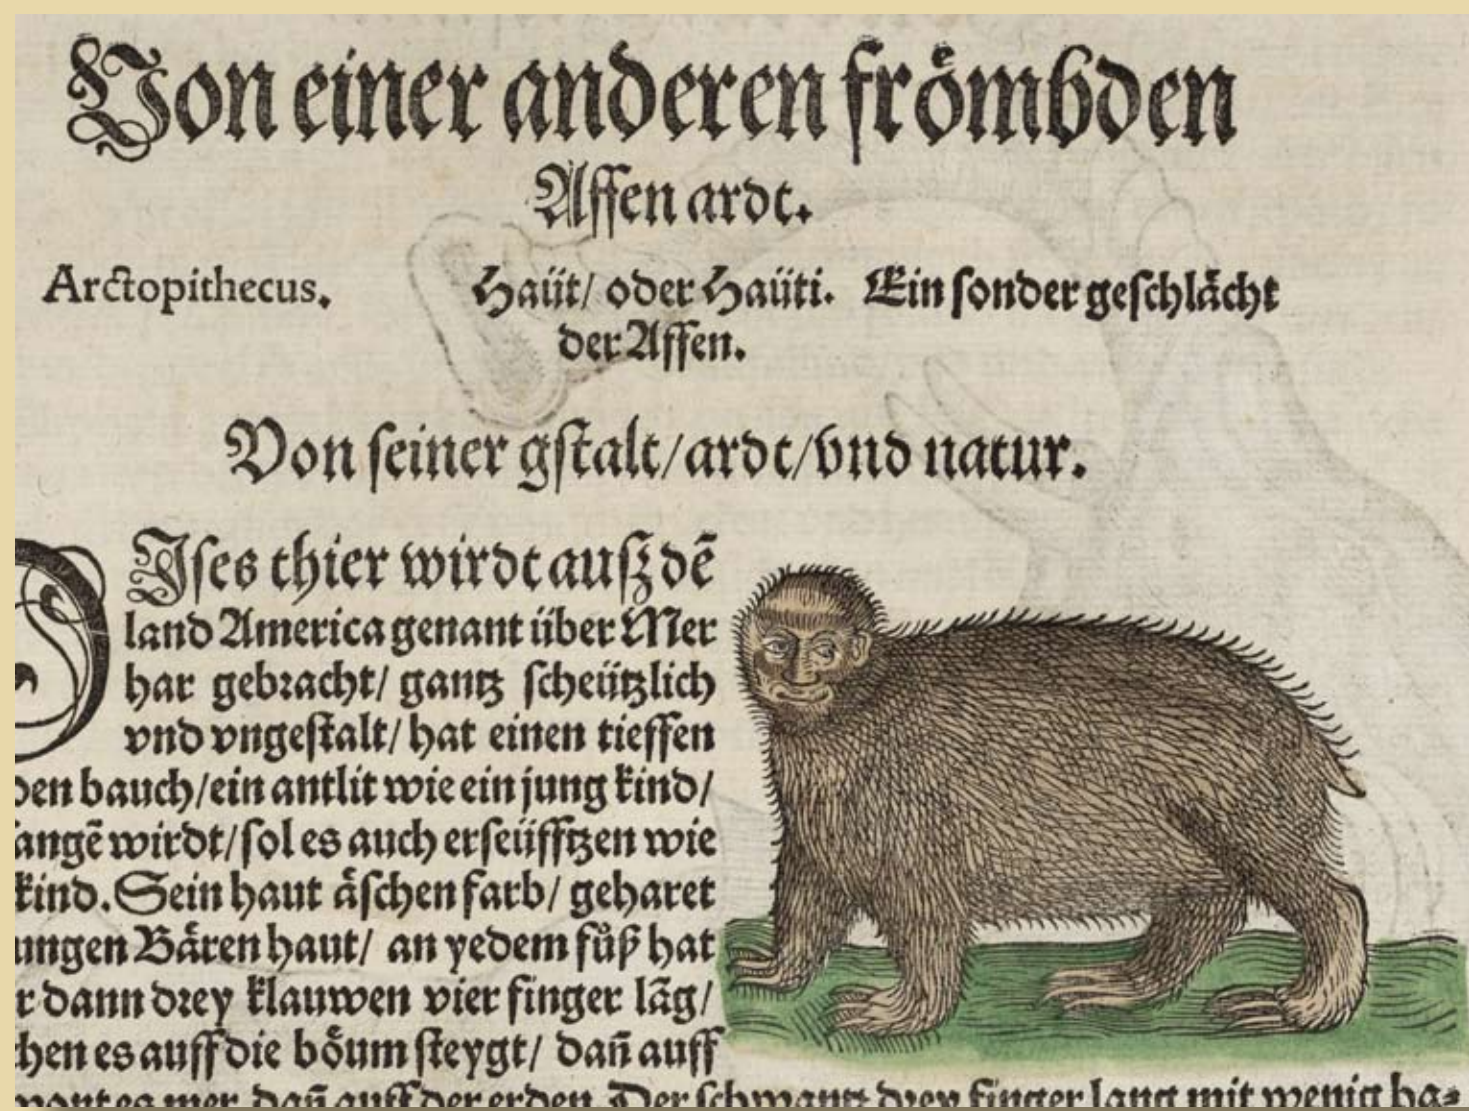 Von einer anderen frömbden
Affen ardt.
Arctopithecus. Haüt/ oder Haüti. Ein sonder geschlächt
der Affen.
Von seiner gstalt/ardt/vnd natur.
DIses thier wirdt ausz dē
land America genant über Mer
har gebracht/ gantz scheützlich
vnd vngestalt/ hat einen tieffen
den bauch/ein antlit wie ein jung kind/
angē wirdt/sol es auch erseüfftzen wie
kind. Sein haut äschen farb/ geharet
ungen Bären haut/ an yedem fůß hat
r dann drey klauwen vier finger lãg/
hen es auff die böum steygt/ dañ auff
wont es mer dañ auff der erden. Der schwantz drey finger lang mit wenig ha⸗